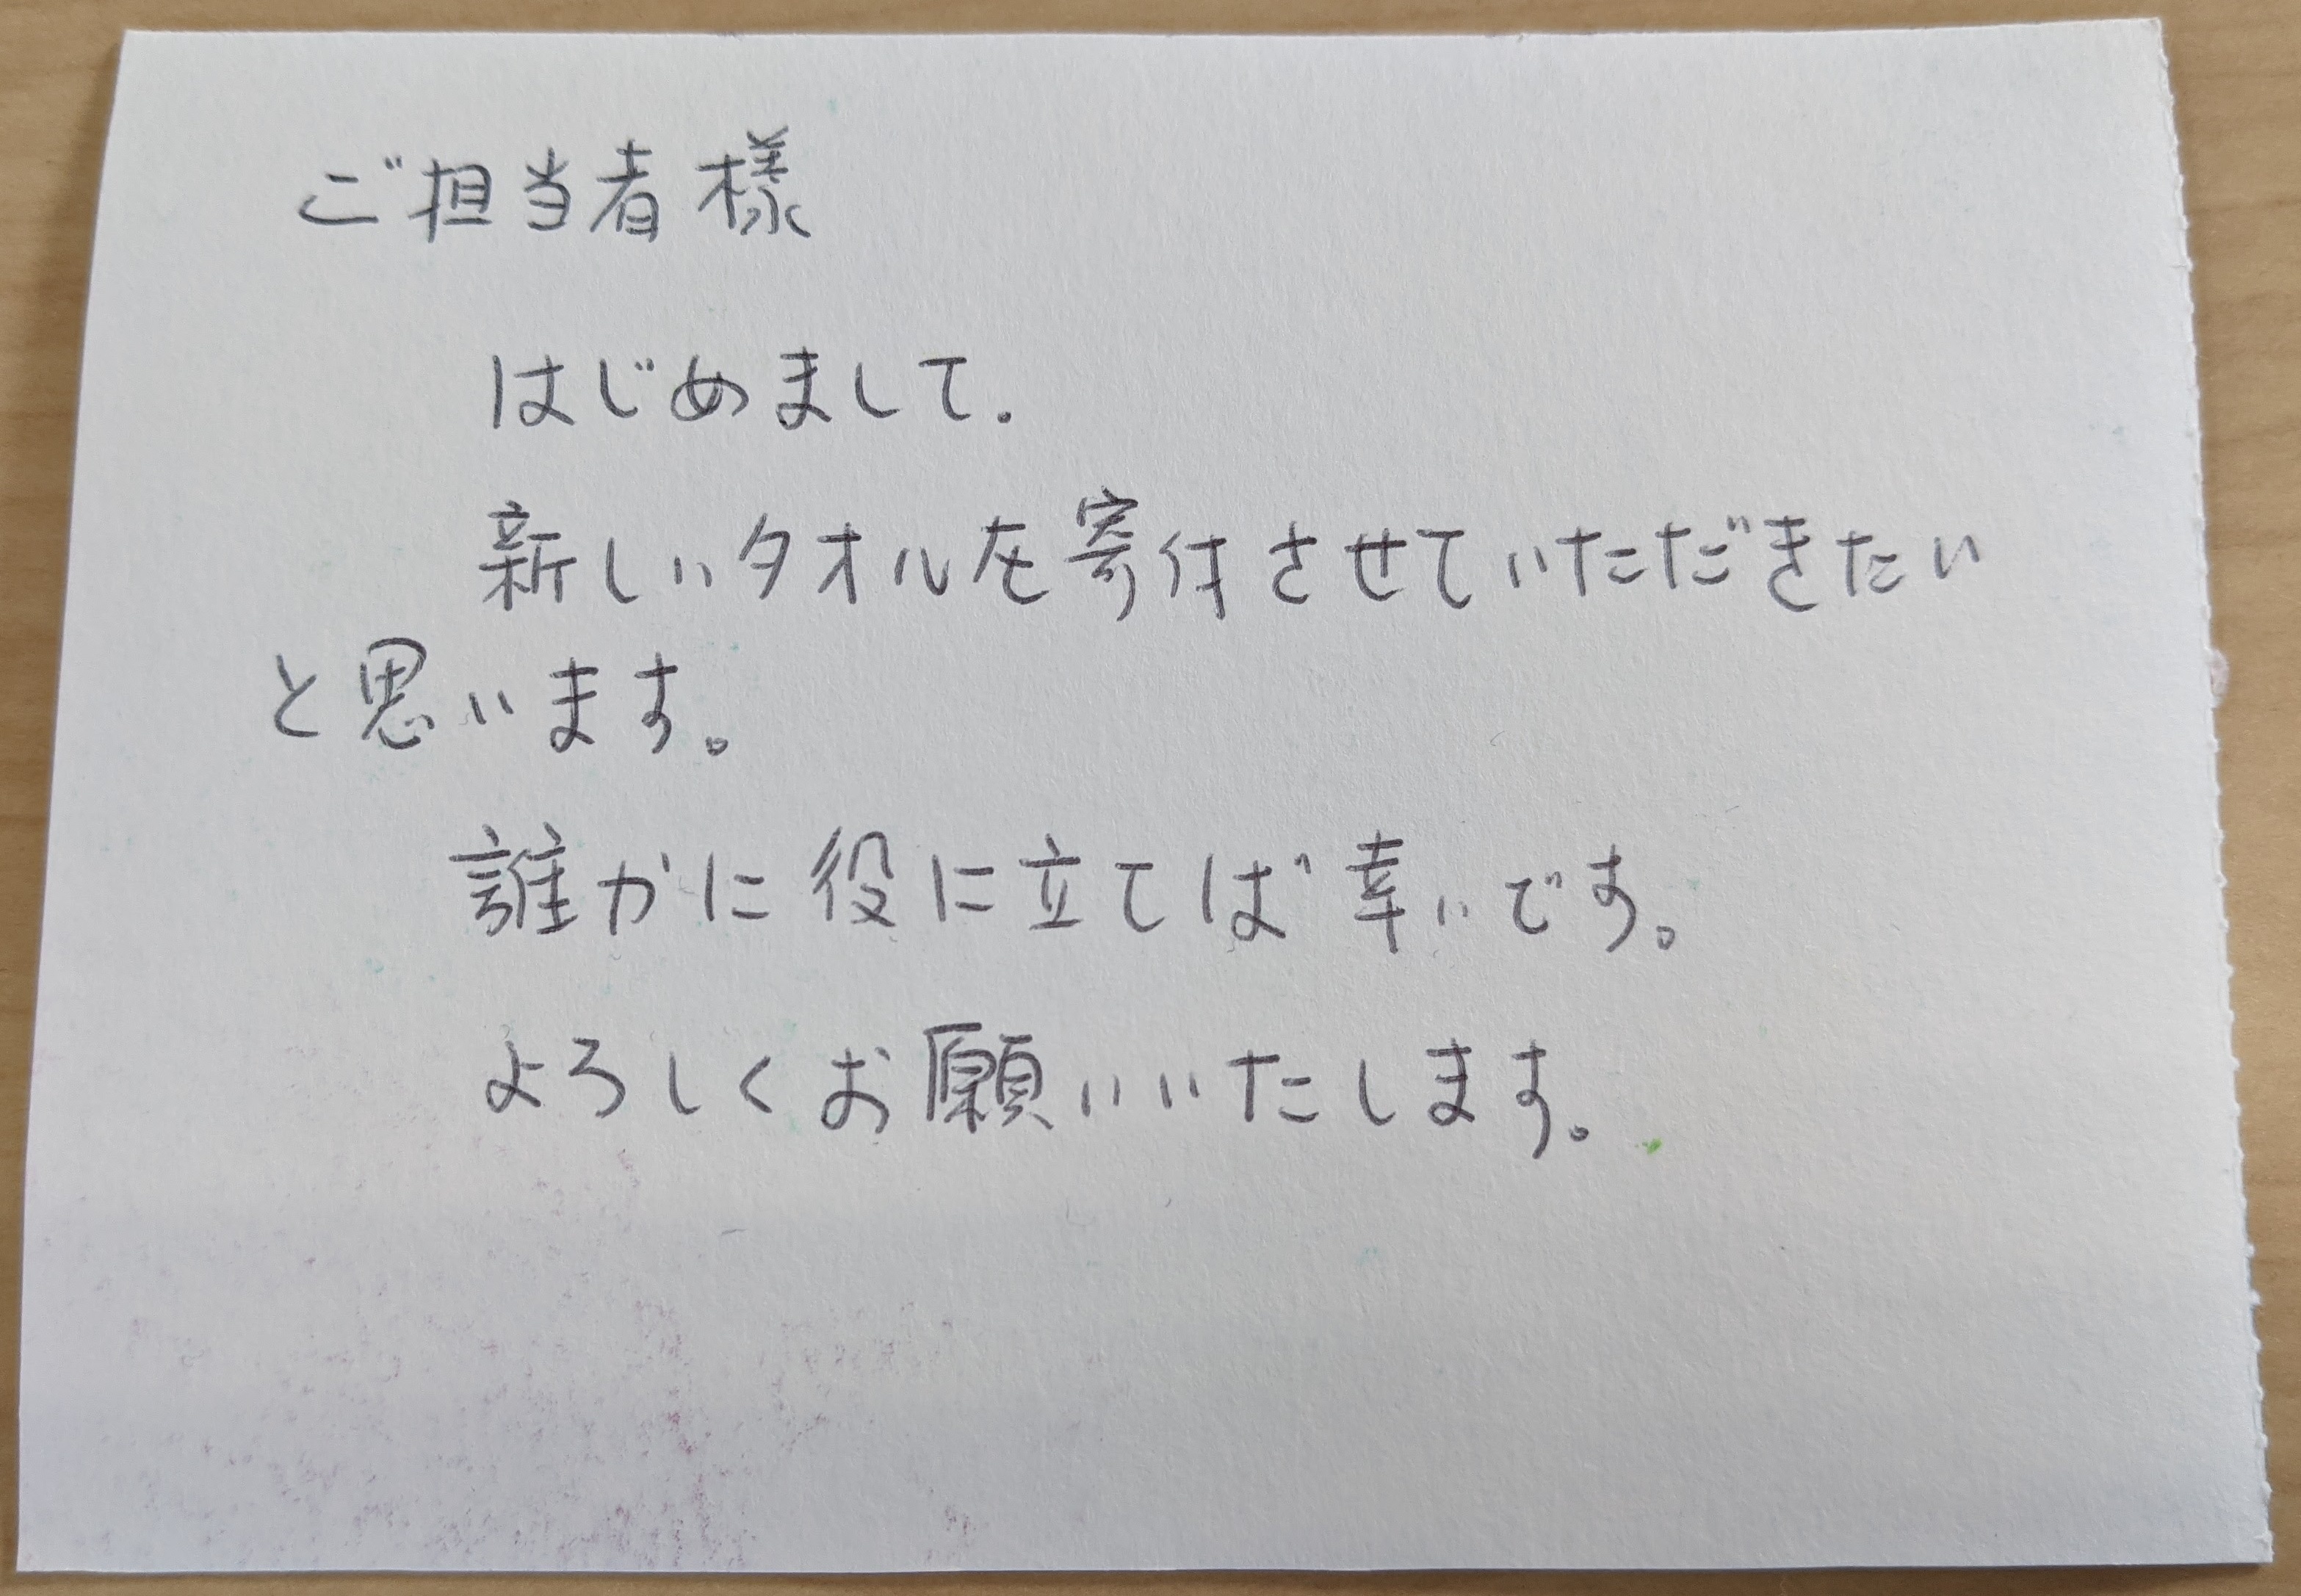 ご担当者様
はじめまして.
新しいタオルを寄付させていただきたい
と思います。
誰かに役に立てば幸いです。
よろしくお願いいたします。